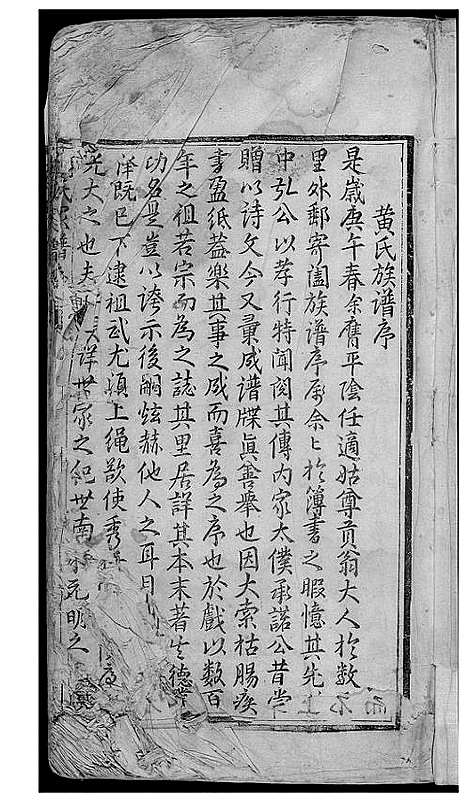 黄氏族譜序
是歲庚午春余膺平陰任適姑尊貢翁大人於數
里外郵寄闔族譜序屬余々於簿書之暇憶其先
中弘公以孝行特聞閱其傳內家太僕承諾公昔嘗
贈以詩文今又彙成譜牒眞善舉也因大索枯腸疾
書盈紙蓋樂其事之成而喜為之序也於戲以數百
年之祖若宗而為之誌其里居詳其本末著其德
功名是豈以誇示後嗣炫赫他人之耳目
澤既已下逮祖武尤須上繩欲使秀
光大之也夫 詳世家之紀世南 元明之